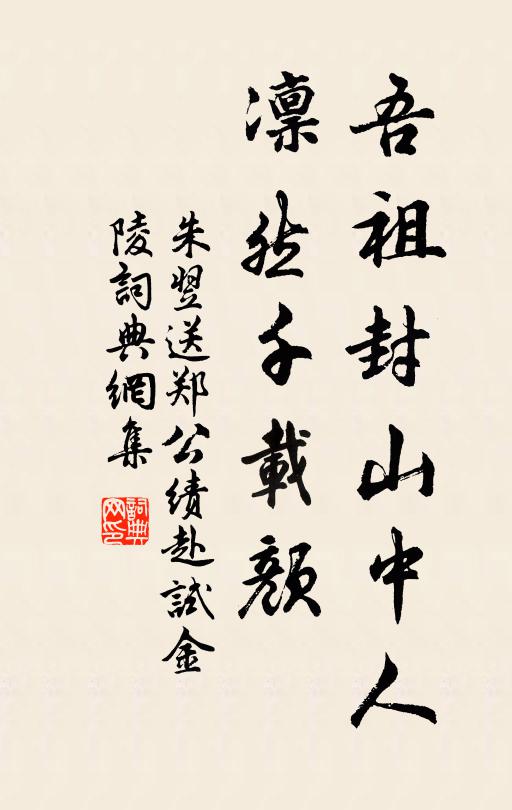 吾祖封山中人
凛然千載顏
朱翌送郑公績赴試金
陵詞典網集
詞典网印